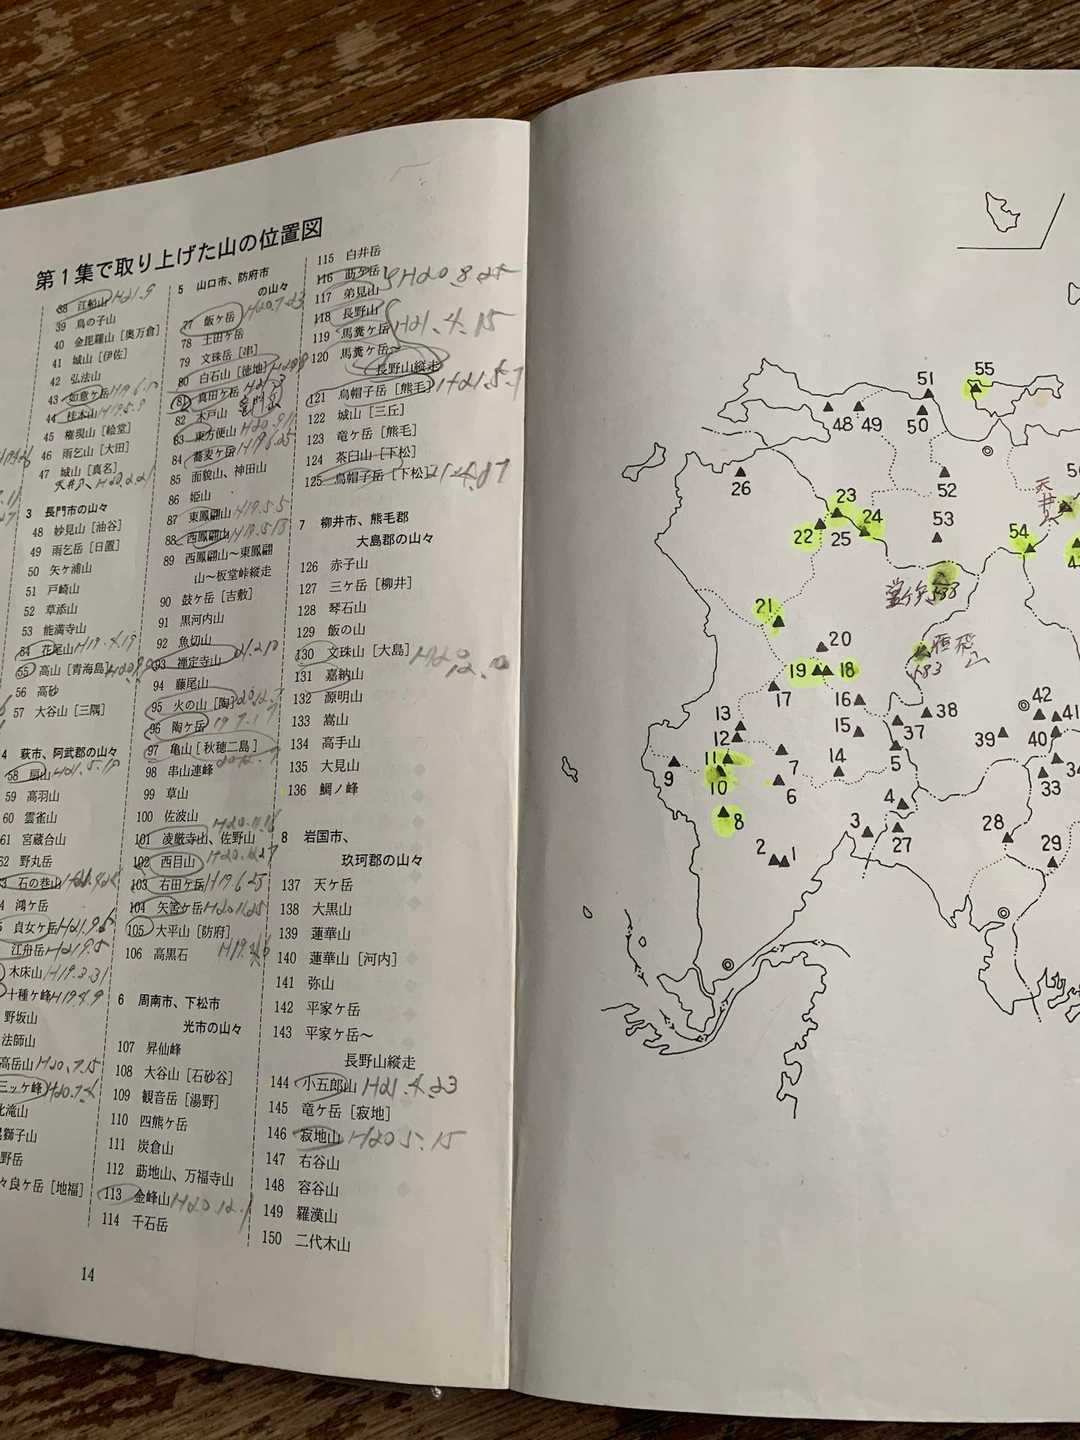 第1集で取り上げた山の位置図
38 江船山 H21.9
39 鳥の子山
40 金毘羅山［奥万倉］
41 城山［伊佐］
42 弘法山
43 如意ヶ岳 H19.6.5
44 桂木山 H19.5.8
45 権現山［絵堂］
46 雨乞山［大田］
47 城山［真名］
天井山 H20.2.21
3 長門市の山々
48 妙見山［油谷］
49 雨乞岳［日置］
50 矢ヶ浦山
51 戸崎山
52 草添山
53 能満寺山
54 花尾山 H19.4.19
55 高山［青海島］
56 高砂
57 大谷山［三隅］
4 萩市、阿武郡の山々
58 扇山 H21.5.18
59 高羽山
60 雲雀山
61 宮蔵合山
62 野丸岳
石の巷山
鴻ヶ岳
貞女ヶ岳 H21.9.6
江舟岳 H21.9.5
木床山 H19.3.31
十種ヶ峰 H19.4.9
野坂山
法師山
高岳山 H20.7.15
三ッケ峰 H20.7.4
北滝山
獅子山
野岳
々良ヶ岳［地福］
5 山口市、防府市
の山々
77 飯ヶ岳 H20.7.23
78 土田ヶ岳
79 文珠岳［串］
80 白石山［徳地］
81 真田ヶ岳
82 木戸山
83 東方便山
84 蕎麦ヶ岳 H19.6.25
85 面貌山、神田山
86 姫山
87 東鳳翩山 H19.5.5
88 西鳳翩山 H19.5.13
89 西鳳翩山〜東鳳翩
山〜板堂峠縦走
90 鼓ヶ岳［吉敷］
91 黒河内山
92 魚切山
93 禅定寺山 21.2.10
94 藤尾山
95 火の山［陶］
96 陶ヶ岳 19.7.17
97 亀山［秋穂二島］
98 串山連峰
99 草山
100 佐波山
101 凌厳寺山、佐野山
102 西目山
103 右田ヶ岳 H19.6.25
104 矢筈ヶ岳 H20.11.25
105 大平山［防府］
106 高黒石
6 周南市、下松市
光市の山々
107 昇仙峰
108 大谷山［石砂谷］
109 観音岳［湯野］
110 四熊ヶ岳
111 炭倉山
112 莇地山、万福寺山
113 金峰山 H20.12.1
114 千石岳
115 白井岳
116 莇ヶ岳 H20.8.25
117 弟見山
118 長野山
119 馬糞ヶ岳 H21.4.15
120 馬糞ヶ岳〜
長野山縦走
121 烏帽子岳［熊毛］ H21.5.7
122 城山［三丘］
123 竜ヶ岳［熊毛］
124 茶臼山［下松］
125 烏帽子岳［下松］
7 柳井市、熊毛郡
大島郡の山々
126 赤子山
127 三ヶ岳［柳井］
128 琴石山
129 飯の山
130 文珠山［大島］
131 嘉納山
132 源明山
133 嵩山
134 高手山
135 大見山
136 鯛ノ峰
8 岩国市、
玖珂郡の山々
137 天ヶ岳
138 大黒山
139 蓮華山
140 蓮華山［河内］
141 弥山
142 平家ヶ岳
143 平家ヶ岳〜
長野山縦走
144 小五郎山 H21.4.23
145 竜ヶ岳［寂地］
146 寂地山 H20.5.15
147 右谷山
148 容谷山
149 羅漢山
150 二代木山
14
55
51
48 49 50
26
52
23
24
22 25
53
天井山
54
538
21
20
19 18
583
17
16
38
42
13
12
15
37
39
41
40
11
9
10
7
14
5
6
33
34
8
4
3
27
28
2 1
29